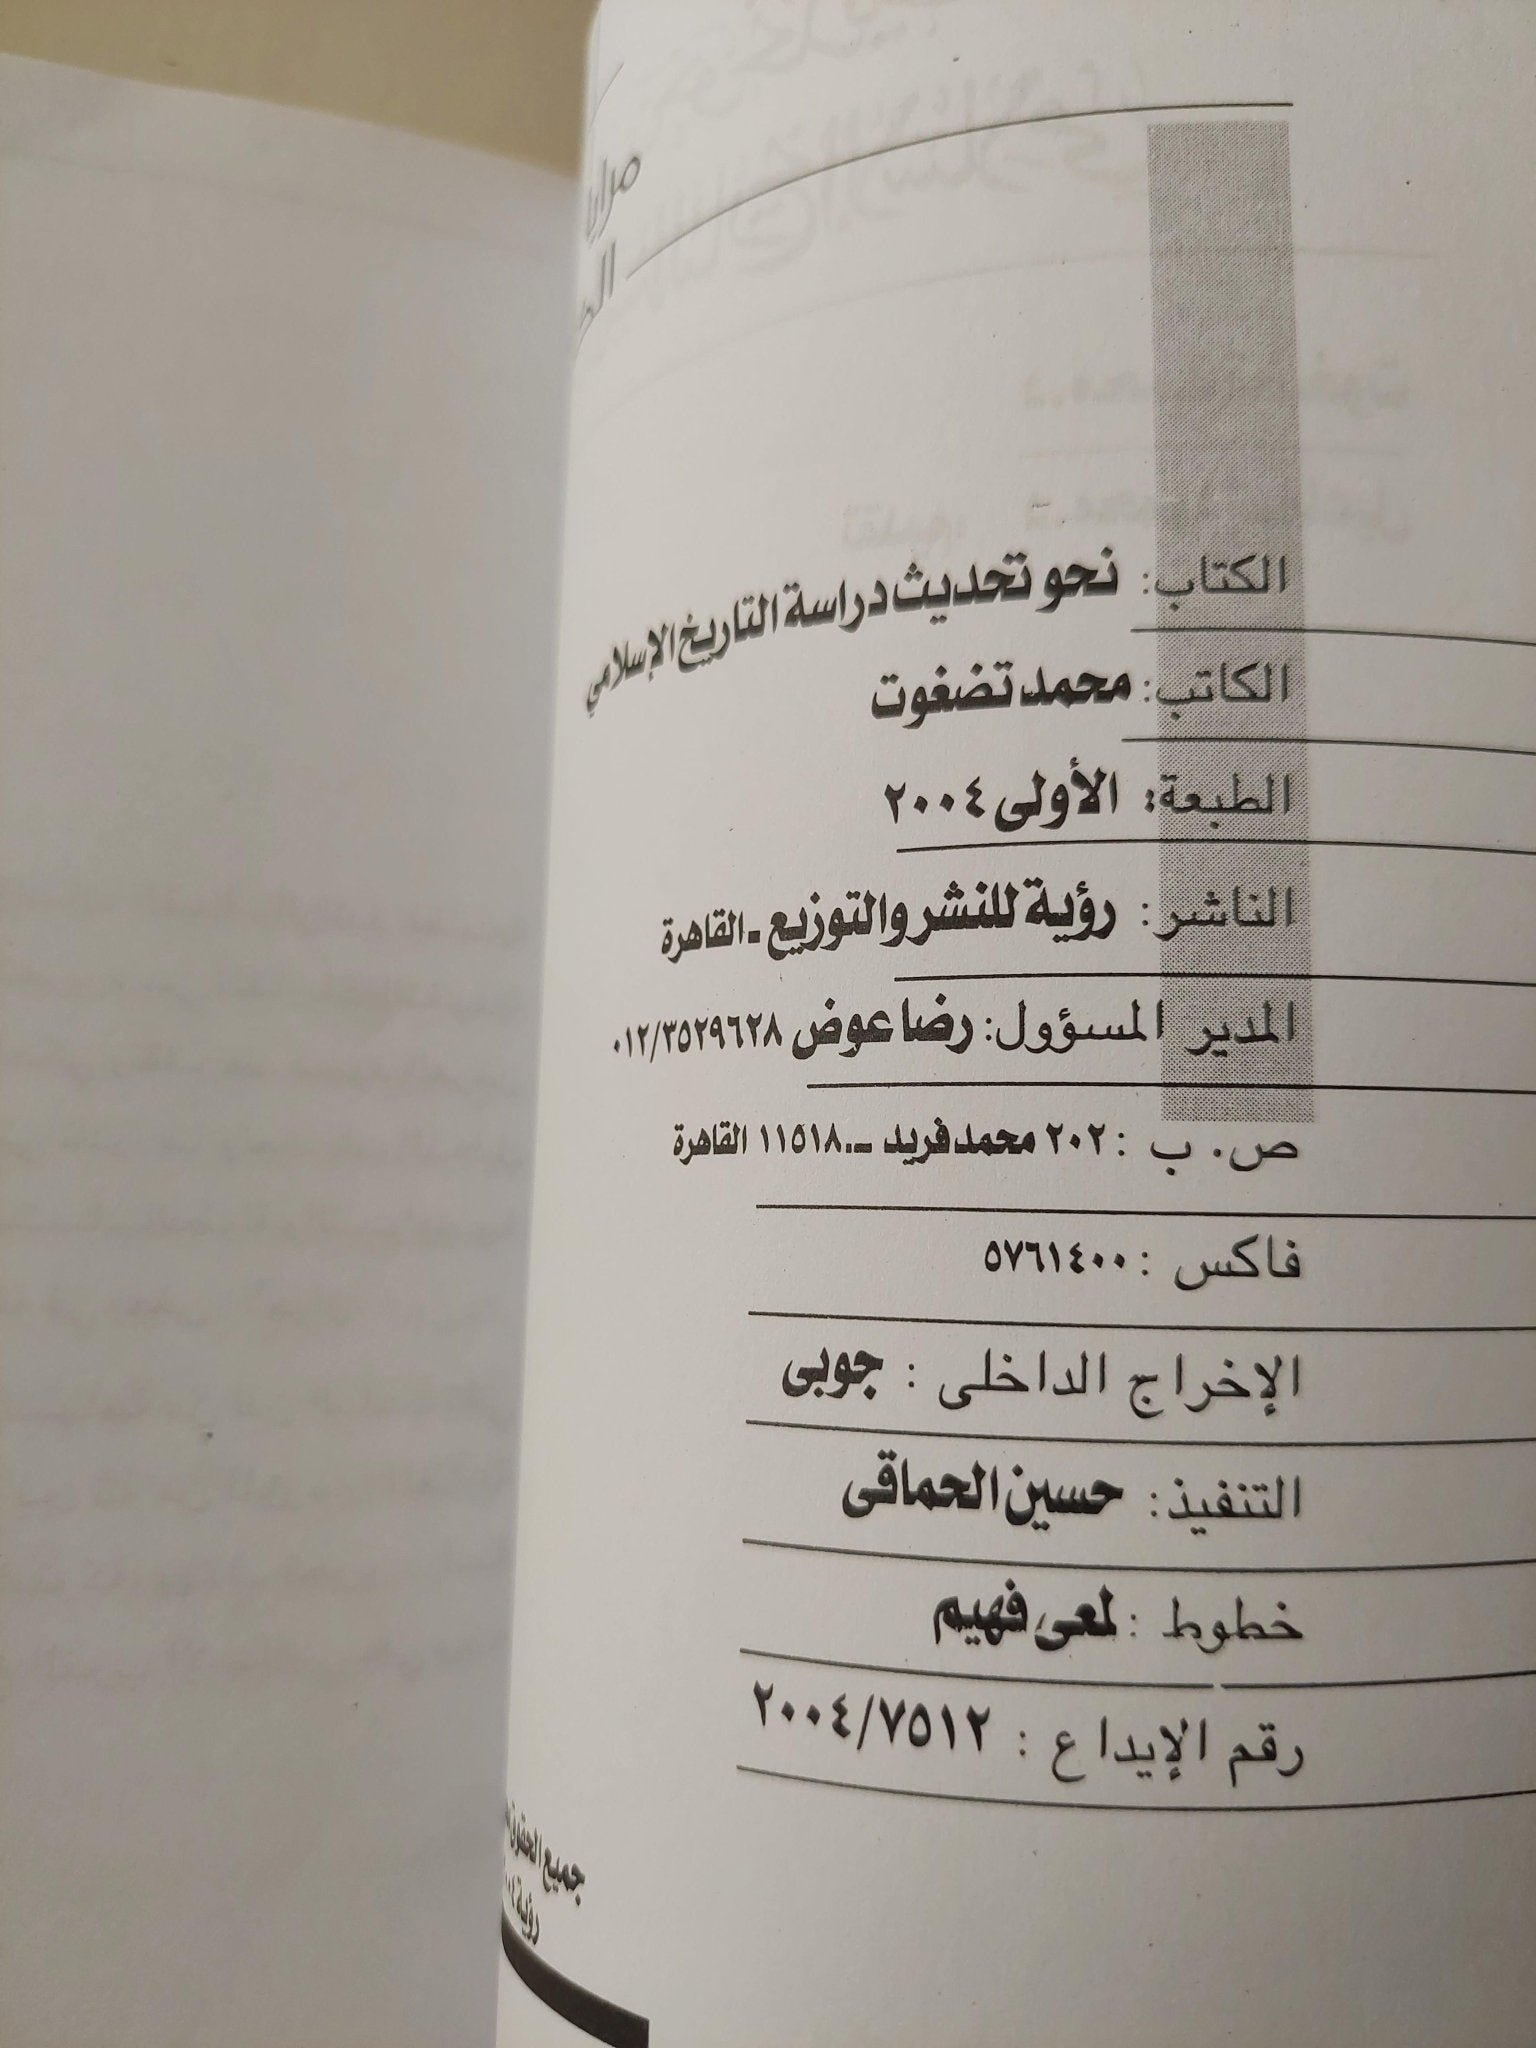 الكتاب: نحو تحديث دراسة التاريخ الإسلامي
الكاتب: محمد تضغوت
الطبعة: الأولى ٢٠٠٤
الناشر: رؤية للنشر والتوزيع - القاهرة
المدير المسؤول: رضا عوض ٠١٢/٣٥٢٩٦٢٨
ص. ب: ٢٠٢ محمد فريد - ١١٥١٨ القاهرة
فاكس: ٥٧٦١٤٠٠
الإخراج الداخلى: جوبى
التنفيذ: حسين الحماقى
خطوط: لمعى فهيم
رقم الإيداع: ٢٠٠٤/٧٥١٢
جميع الحقوق
رؤية